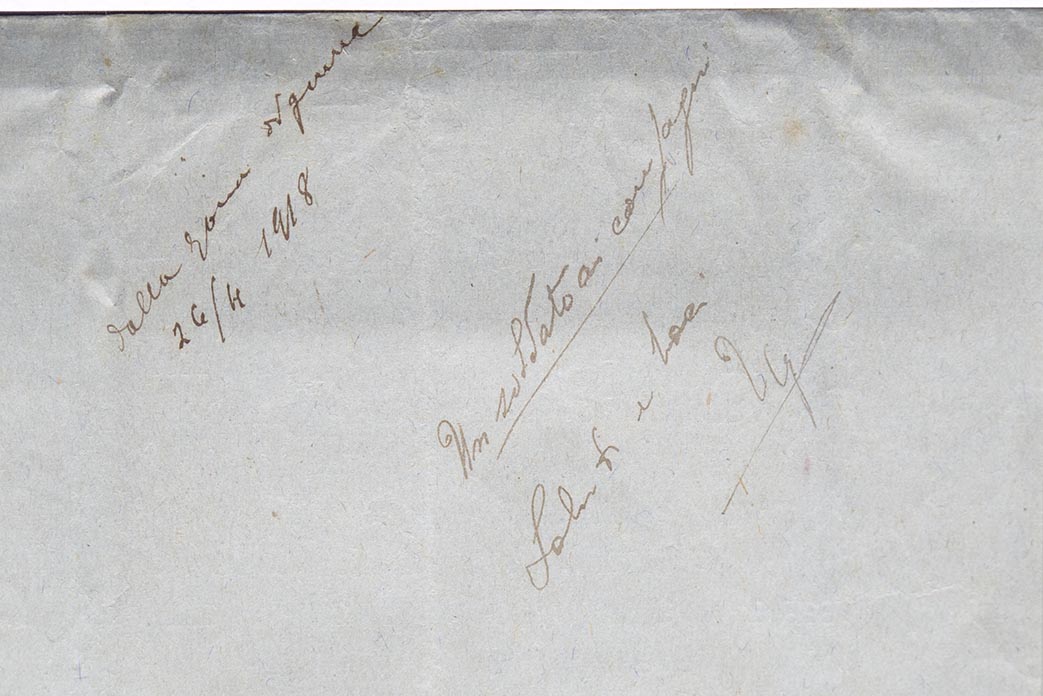 Dalla zona di guerra
26/4 1918
Un soldato ai compagni
Saluti e baci